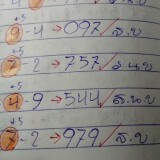 +5
9-4→097/ส.ข
+5
7-2→757/ส.น.ข
+5
4-9→544/ส.น.ข
+5
7-2→979/ส.ข